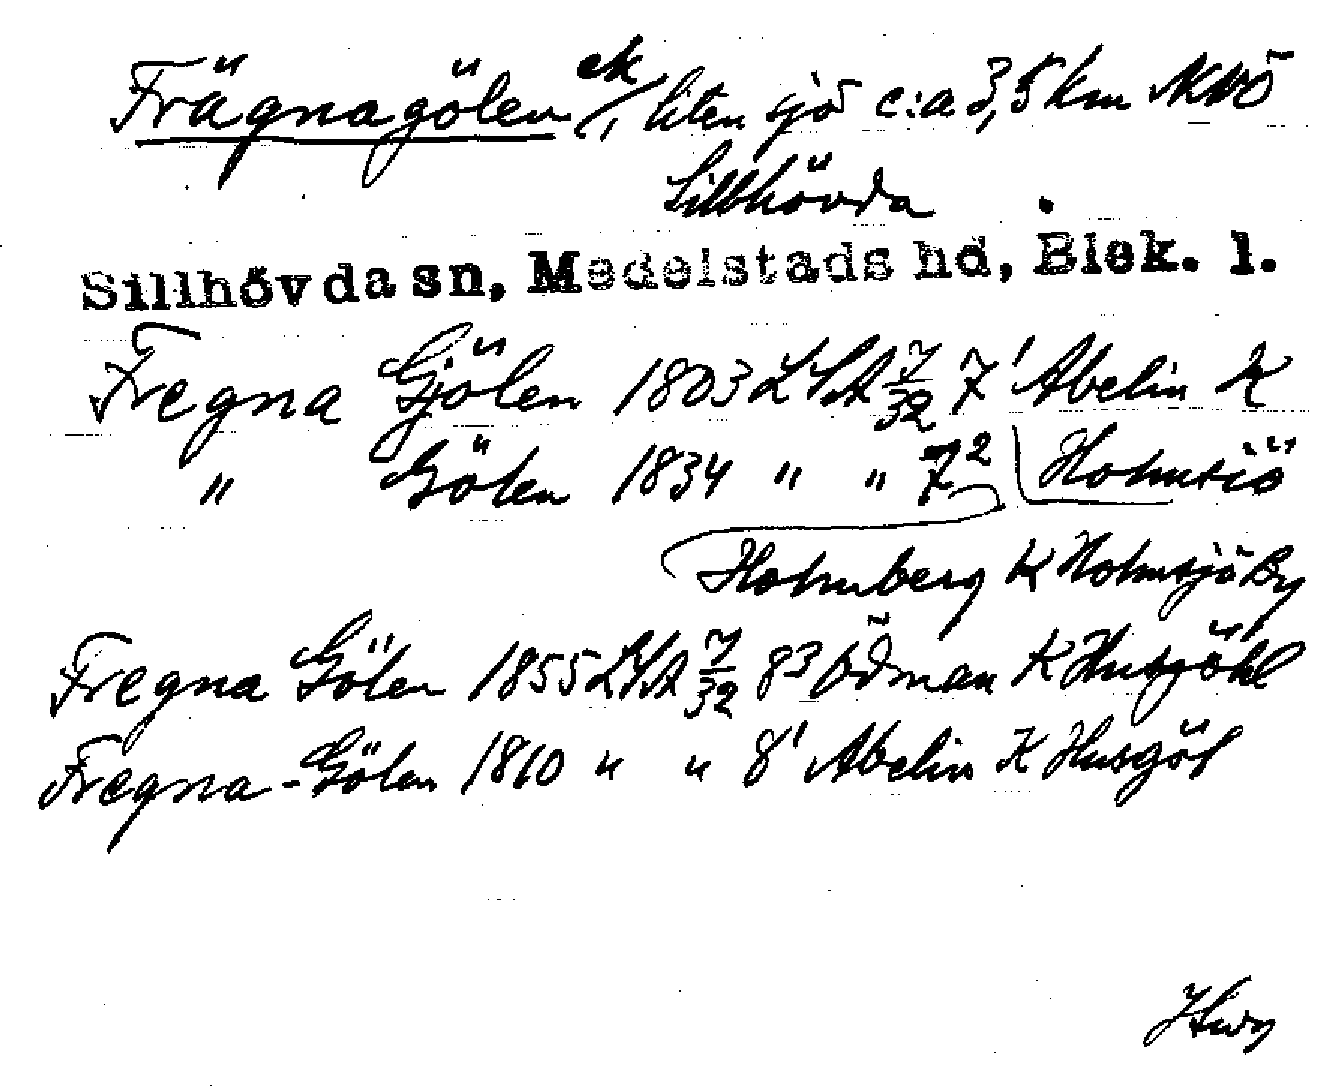 Frägnagölen ek, liten sjö c:a 3,5 km NNÖ
Sillhövda
Sillhövda sn, Medelstads hd, Blek. l.
Fregna Gjölen 1803 LSA 7/32 7¹ Abelin K
" Gölen 1834 " " 7² Holmsiö
Holmberg K Holmsjö By
Fregna Gölen 1855 LSA 7/32 8³ Ödman K Husgöhl
Fregna-Gölen 1810 " " 8¹ Abelin K Husgöl